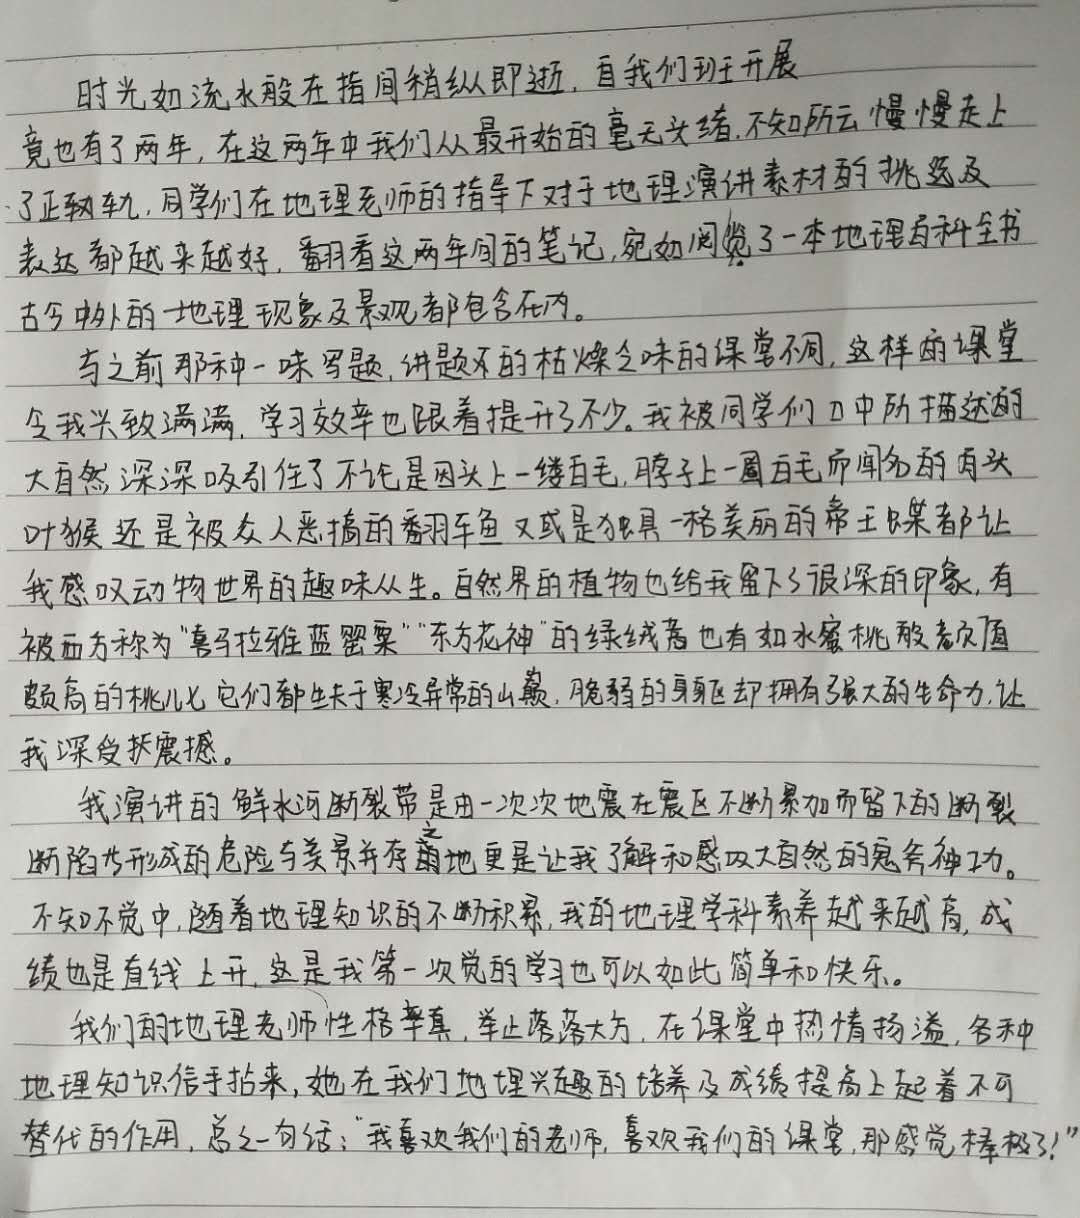 时光如流水般在指间稍纵即逝，自我们班开展
竟也有了两年，在这两年中我们从最开始的毫无头绪，不知所云慢慢走上
了正轨，同学们在地理老师的指导下对于地理演讲素材的挑选及
表达都越来越好，翻看这两年间的笔记，宛如阅览了一本地理百科全书
古今中外的地理现象及景观都包含在内。
与之前那种一味写题，讲题的枯燥乏味的课堂不同，这样的课堂
令我兴致满满，学习效率也跟着提升了不少。我被同学们口中所描述的
大自然深深吸引住了不论是因头上一缕白毛，脖子上一圈白毛而闻名的白头
叶猴还是被众人恶搞的翻车鱼又或是独具一格美丽的帝王蝶都让
我感叹动物世界的趣味丛生。自然界的植物也给我留下了很深的印象，有
被西方称为“喜马拉雅蓝罂粟”“东方花神”的绿绒蒿也有如水蜜桃般颜值
颇高的桃儿七它们都生长于寒冷异常的山巅，脆弱的身躯却拥有强大的生命力，让
我深受震撼。
我演讲的鲜水河断裂带是由一次次地震在震区不断累加而留下的断裂
断陷形成的危险与美景并存之地更是让我了解和感叹大自然的鬼斧神功。
不知不觉中，随着地理知识的不断积累，我的地理学科素养越来越高，成
绩也是直线上升，这是我第一次觉的学习也可以如此简单和快乐。
我们的地理老师性格率真，举止落落大方，在课堂中热情扬溢，各种
地理知识信手拈来，她在我们地理兴趣的培养及成绩提高上起着不可
替代的作用，总之一句话：“我喜欢我们的老师，喜欢我们的课堂，那感觉棒极了！”